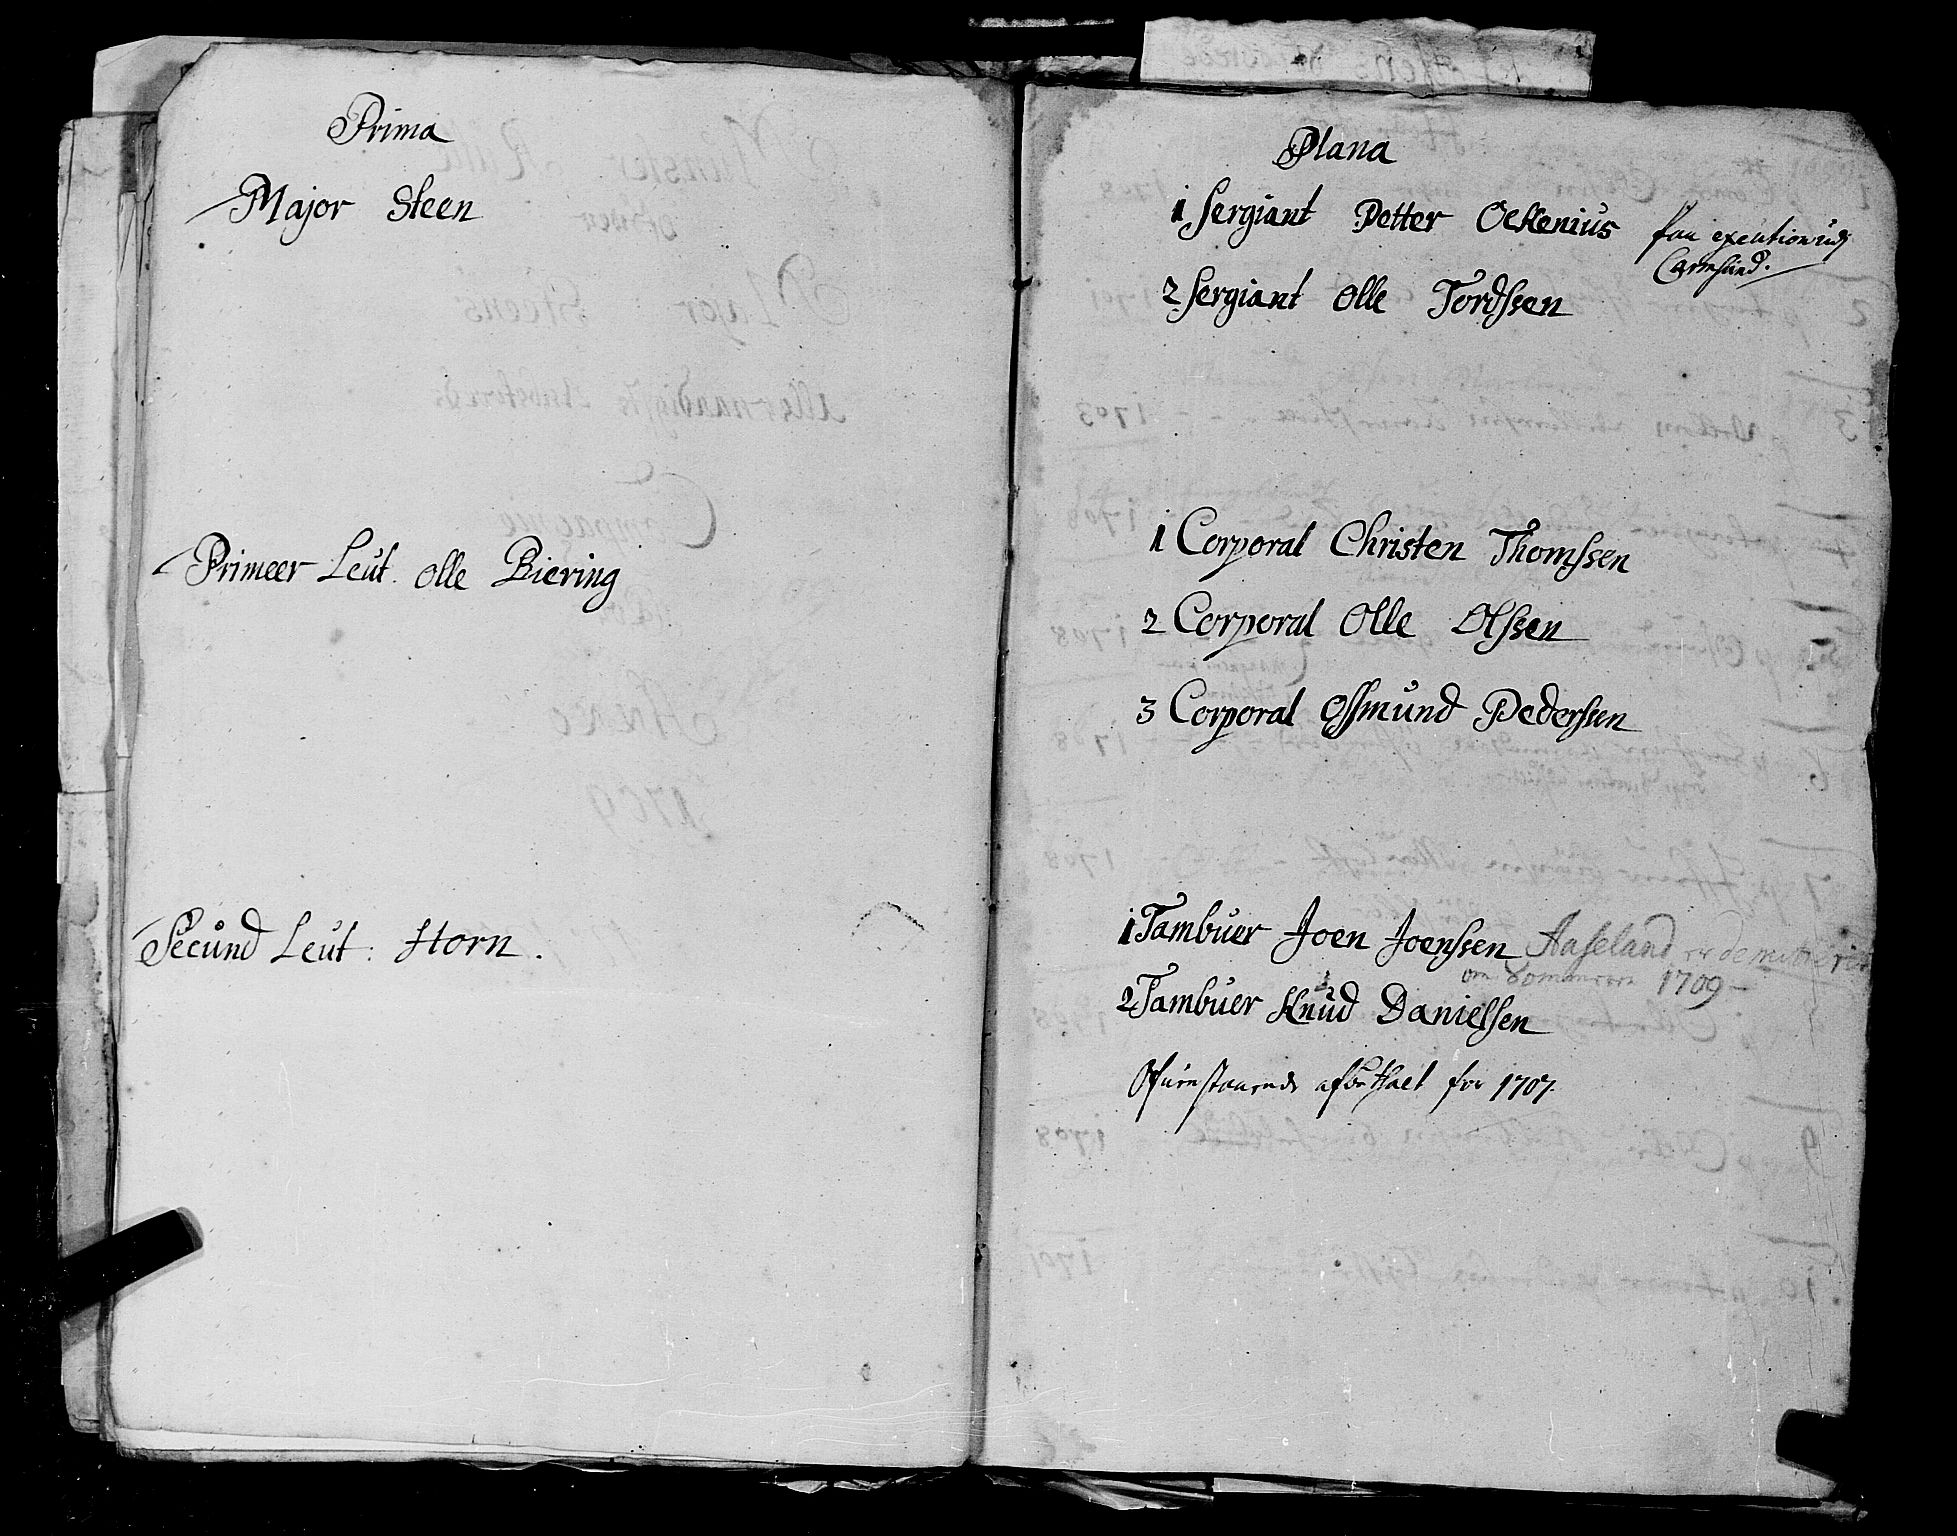 Prima
Major Steen
Primeer Leut. Olle Biering
Secund Leut: Horn.
Plana
1 Sergiant Petter Ockenius paa
Carmsund.
2 Sergiant Olle Tordssen
1 Corporal Christen Thomssen
2 Corporal Olle Olssen
3 Corporal Ossmund Pederssen
1 Tambuer Joen Joenssen Aaseland er
om Sommeren 1709
2 Tambuer Knud Danielssen
for 1707.